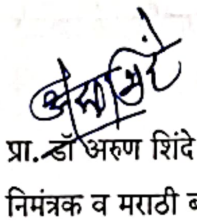 प्रा. डॉ अरुण शिंदे
निमंत्रक व मराठी